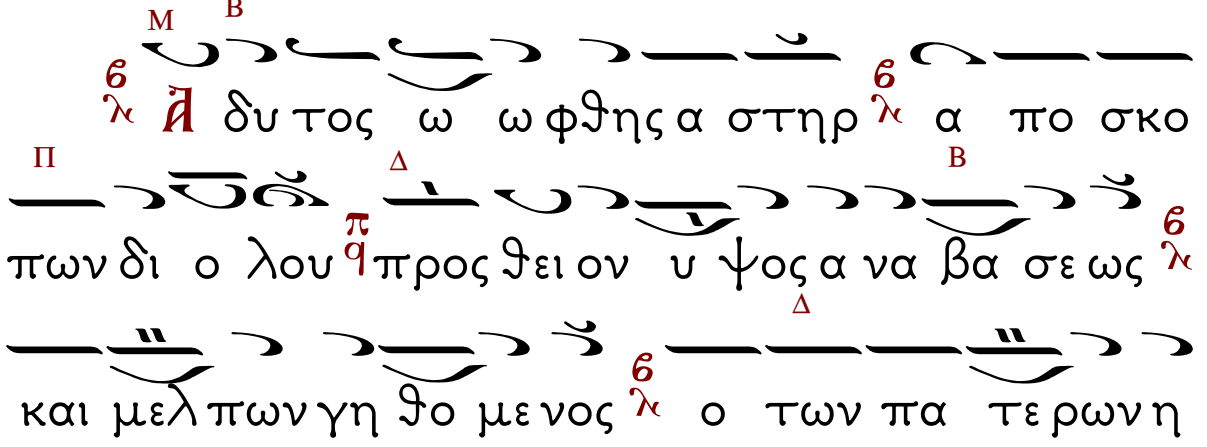 Μ Β
ϐλ Ἀ δυ τος ω ω φϑης α στηρ ϐλ α πο σκο
Π Δ Β
πων δι ο λου πq προς ϑει ον υ ψος α να βα σε ως ϐλ
Δ
και μελ πων γη ϑο με νος ϐλ ο των πα τε ρων η